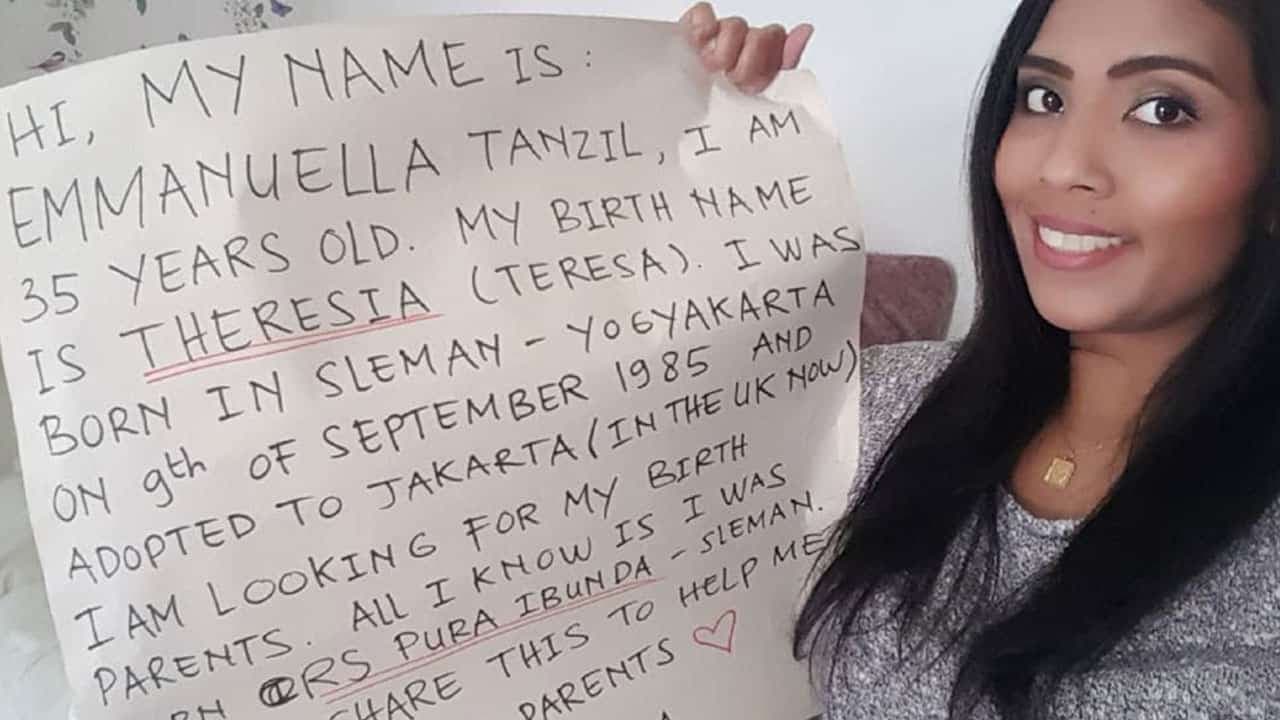 HI, MY NAME IS :
EMMANUELLA TANZIL, I AM
35 YEARS OLD. MY BIRTH NAME
IS THERESIA (TERESA). I WAS
BORN IN SLEMAN - YOGYAKARTA
ON 9th OF SEPTEMBER 1985 AND
ADOPTED TO JAKARTA (IN THE UK NOW)
I AM LOOKING FOR MY BIRTH
PARENTS. ALL I KNOW IS I WAS
RS PURA IBUNDA - SLEMAN.
SHARE THIS TO HELP ME
PARENTS